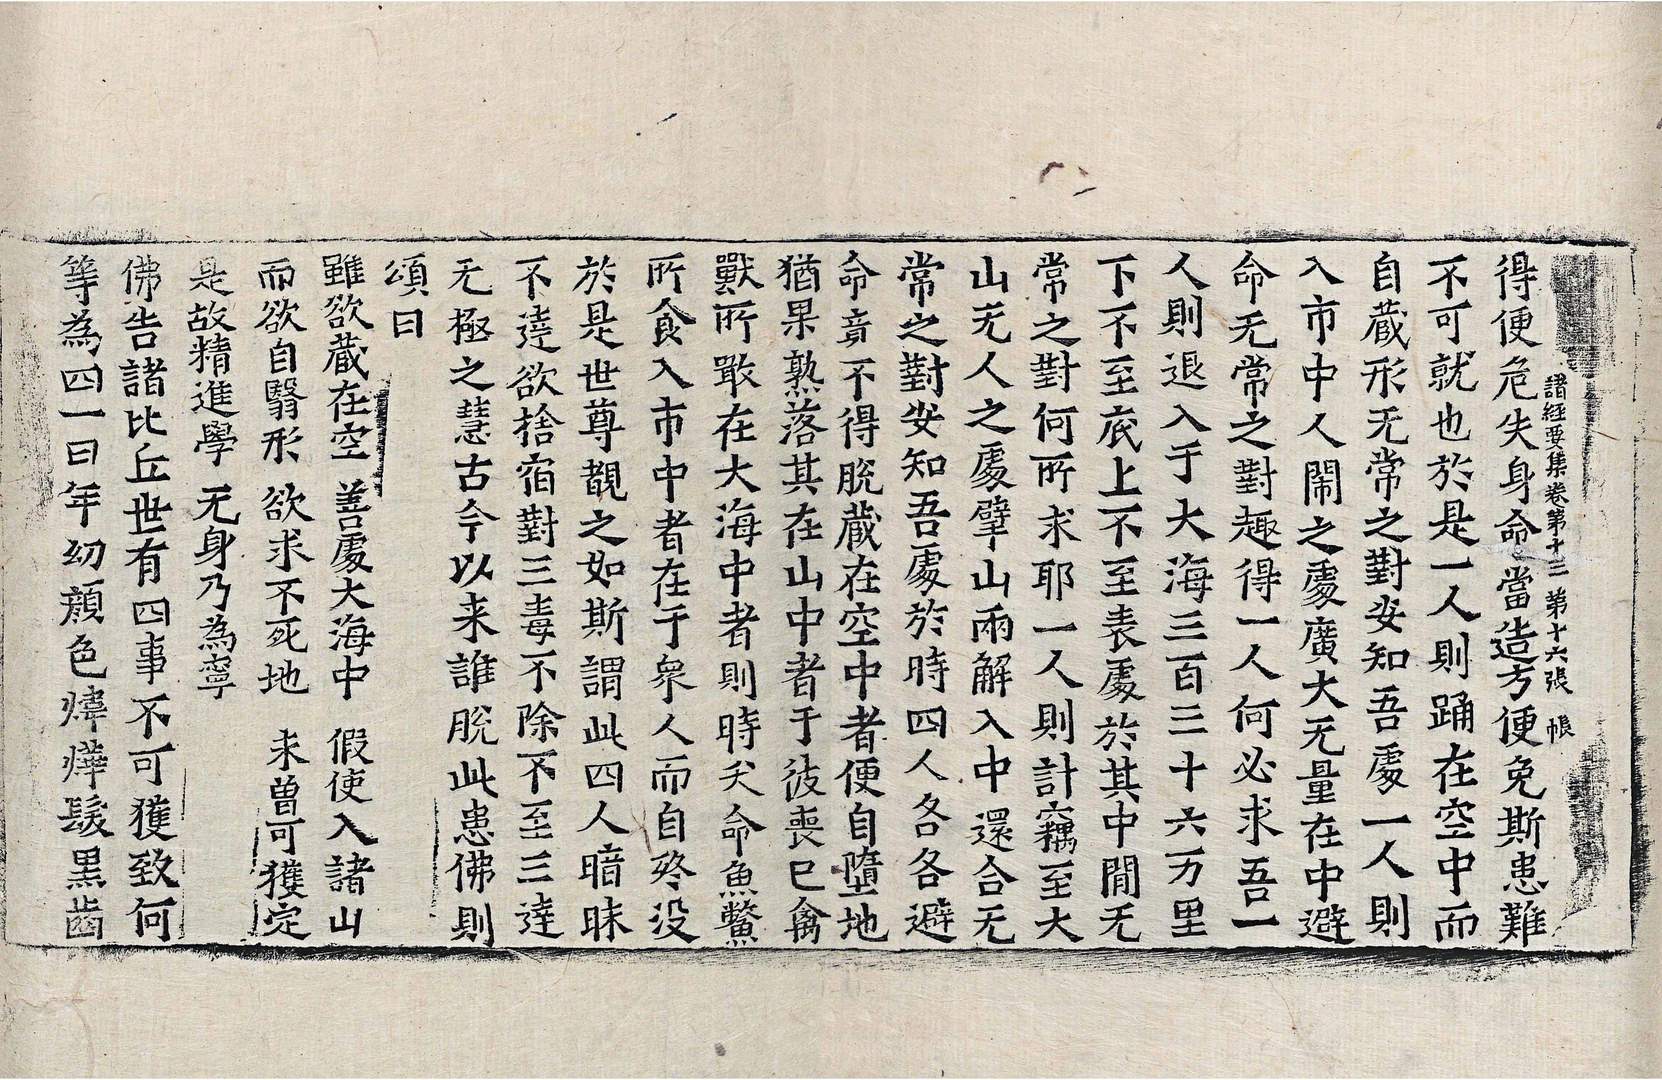 諸經要集卷第十三 第十六張 帳
得便危失身命當造方便免斯患難
不可就也於是一人則踊在空中而
自藏形无常之對安知吾處一人則
入市中人閙之處廣大无量在中避
命无常之對趣得一人何必求吾一
人則退入于大海三百三十六万里
下不至底上不至表處於其中閒无
常之對何所求耶一人則計竊至大
山无人之處擘山兩解入中還合无
常之對安知吾處於時四人各各避
命竟不得脫藏在空中者便自墮地
猶果熟落其在山中者于彼喪已禽
獸所噉在大海中者則時夭命魚鱉
所食入市中者在于衆人而自終没
於是世尊覩之如斯謂此四人暗昧
不達欲捨宿對三毒不除不至三達
无極之慧古今以来誰脫此患佛則
頌曰
雖欲藏在空 善處大海中 假使入諸山
而欲自翳形 欲求不死地 未曾可獲定
是故精進學 无身乃為寧
佛告諸比丘世有四事不可獲致何
等為四一曰年幼顏色煒燁髮黒齒